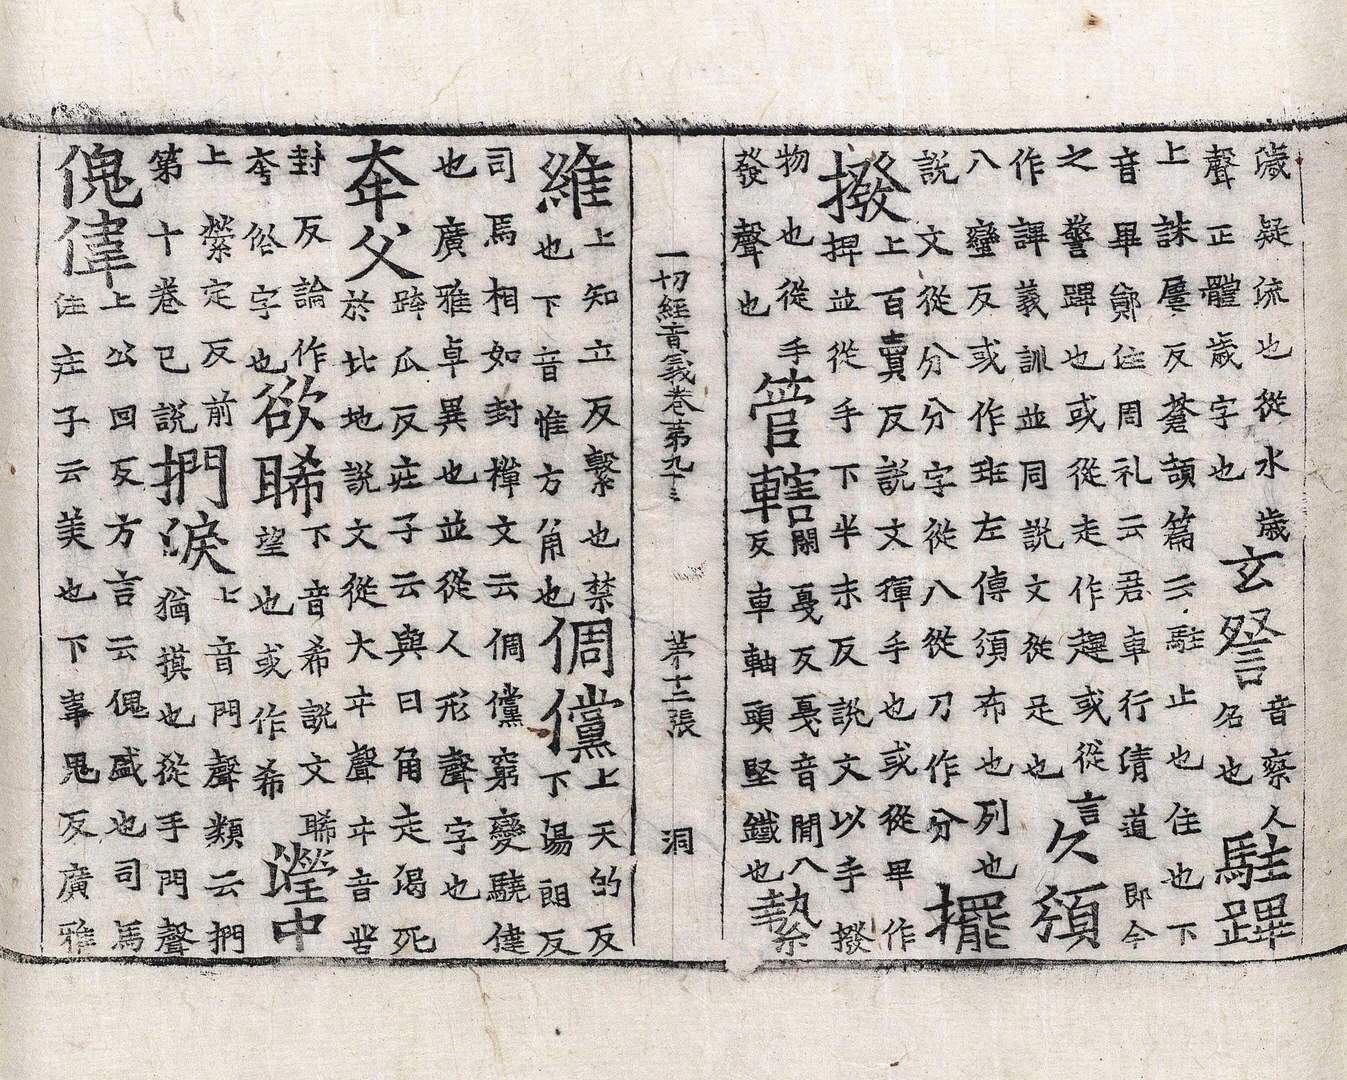 濊疑流也從水歲
聲正體歲字也
玄詧
音察人
名也
駐蹕
上誅屢反蒼頡篇云駐止也住也下
音畢鄭住周礼云君車行清道即今
之警蹕也或從走作趩或從言
作譁義訓並同說文從足也
久頒
八蠻反或作班左傳須布也列也
說文從分分字從八從刀作分
擺撥
上百賣反說文揮手也或從畢作
捭並從手下半末反說文以手撥
物也從手
發聲也
管轄
關戛反戛音閒八
反車軸頭堅鐵也
縶
一切經音義卷第九十三 第十二張 洞
維
上知立反繫也禁
也下音惟方角也
倜儻
上天的反
下湯朗反
司馬相如封禪文云倜儻窮變驍偉
也廣雅卓異也並從人形聲字也
夲父
跨瓜反莊子云與曰角走渴死
於北地說文從大㐄聲㐄音皆
封反論作
夸俗字也
欲睎
下音希說文睎
望也或作希
瀅中
上縈定反前
第十卷已說
捫淚
上音門聲類云捫
猶摸也從手門聲
傀偉
上公回反方言云傀盛也司馬
住庄子云美也下韋鬼反廣雅